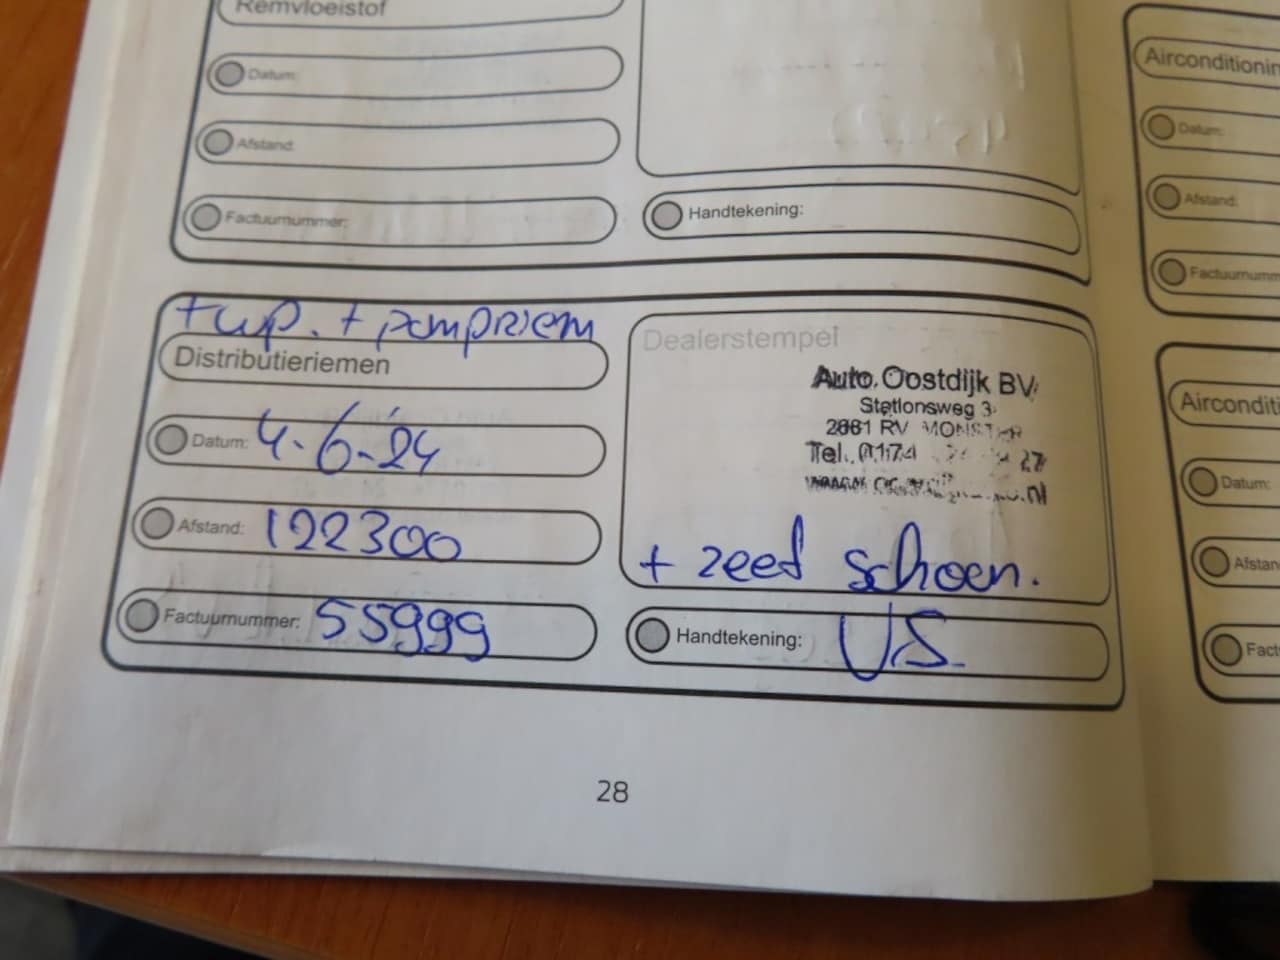 Remvloeistof
Datum:
Afstand:
Factuurnummer:
Handtekening:
+ wp. + pompriem
Distributieriemen
Datum: 4-6-24
Afstand: 122300
Factuurnummer: 55999
Dealerstempel
Auto Oostdijk BV
Stationsweg 3
2681 RV MONSTER
Tel. 0174 27
.nl
+ zeef schoen.
Handtekening: VS
28
Airconditionin
Datum:
Afstand:
Factuurnumm
Airconditi
Datum:
Afstan
Fact